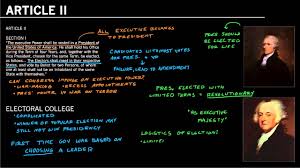 ARTICLE II
ARTICLE II
SECTION I
The executive Power shall be vested in a President of
the United States of America. He shall hold his Office
during the Term of four Years, and, together with the
Vice President, chosen for the same Term, be elected,
as follows: The Electors shall meet in their respective
States, and vote by Ballot for two Persons, of whom
one at least shall not be an Inhabitant of the same
State with themselves."
ALL EXECUTIVE BELONGS
TO PRESIDENT
CANDIDATES WITH MOST VOTES
ARE PRES. & VP
FAILURE, LEAD TO AMENDMENTS
PRES SHOULD
BE ELECTED
FOR LIFE
CAN CONGRESS IMPINGE ON EXECUTIVE POWER?
PRES. ELECTED WITH
LIMITED TERMS = REVOLUTIONARY
ELECTORAL COLLEGE
COMPLICATED
WINNER OF POPULAR ELECTION MAY
STILL NOT WIN PRESIDENCY
FIRST TIME GOV WAS BASED ON
CHOOSING A LEADER
"AS EXECUTIVE
MAJESTY"
LOGISTICS OF ELECTIONS!
LIMITED